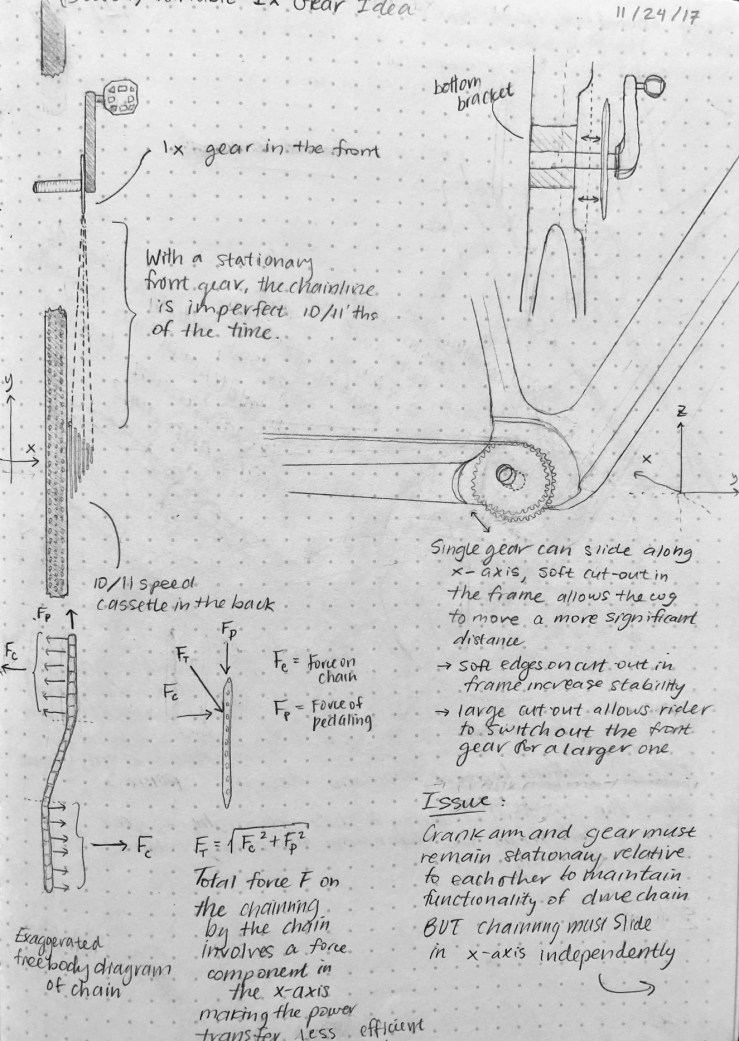 1x Gear Idea
11/24/17
bottom
bracket
1x gear in the front
With a stationary
front gear, the chainline
is imperfect 10/11'ths
of the time.
y
x
z
x
y
10/11 speed
cassette in the back
Single gear can slide along
x-axis, soft cut-out in
the frame allows the cog
to move a more significant
distance
→ soft edges on cut out in
frame increase stability
→ large cut out allows rider
to switch out the front
gear for a larger one
Fp
Fc
Fc
Exaggerated
free body diagram
of chain
Fp
FT
Fc
Fc = Force on
chain
Fp = Force of
pedaling
FT = √Fc² + Fp²
Total force F on
the chainring
by the chain
involves a force
component in
the x-axis
making the power
transfer less efficient
Issue:
Crank arm and gear must
remain stationary relative
to each other to maintain
functionality of drive chain
BUT chainring must slide
in x-axis independently